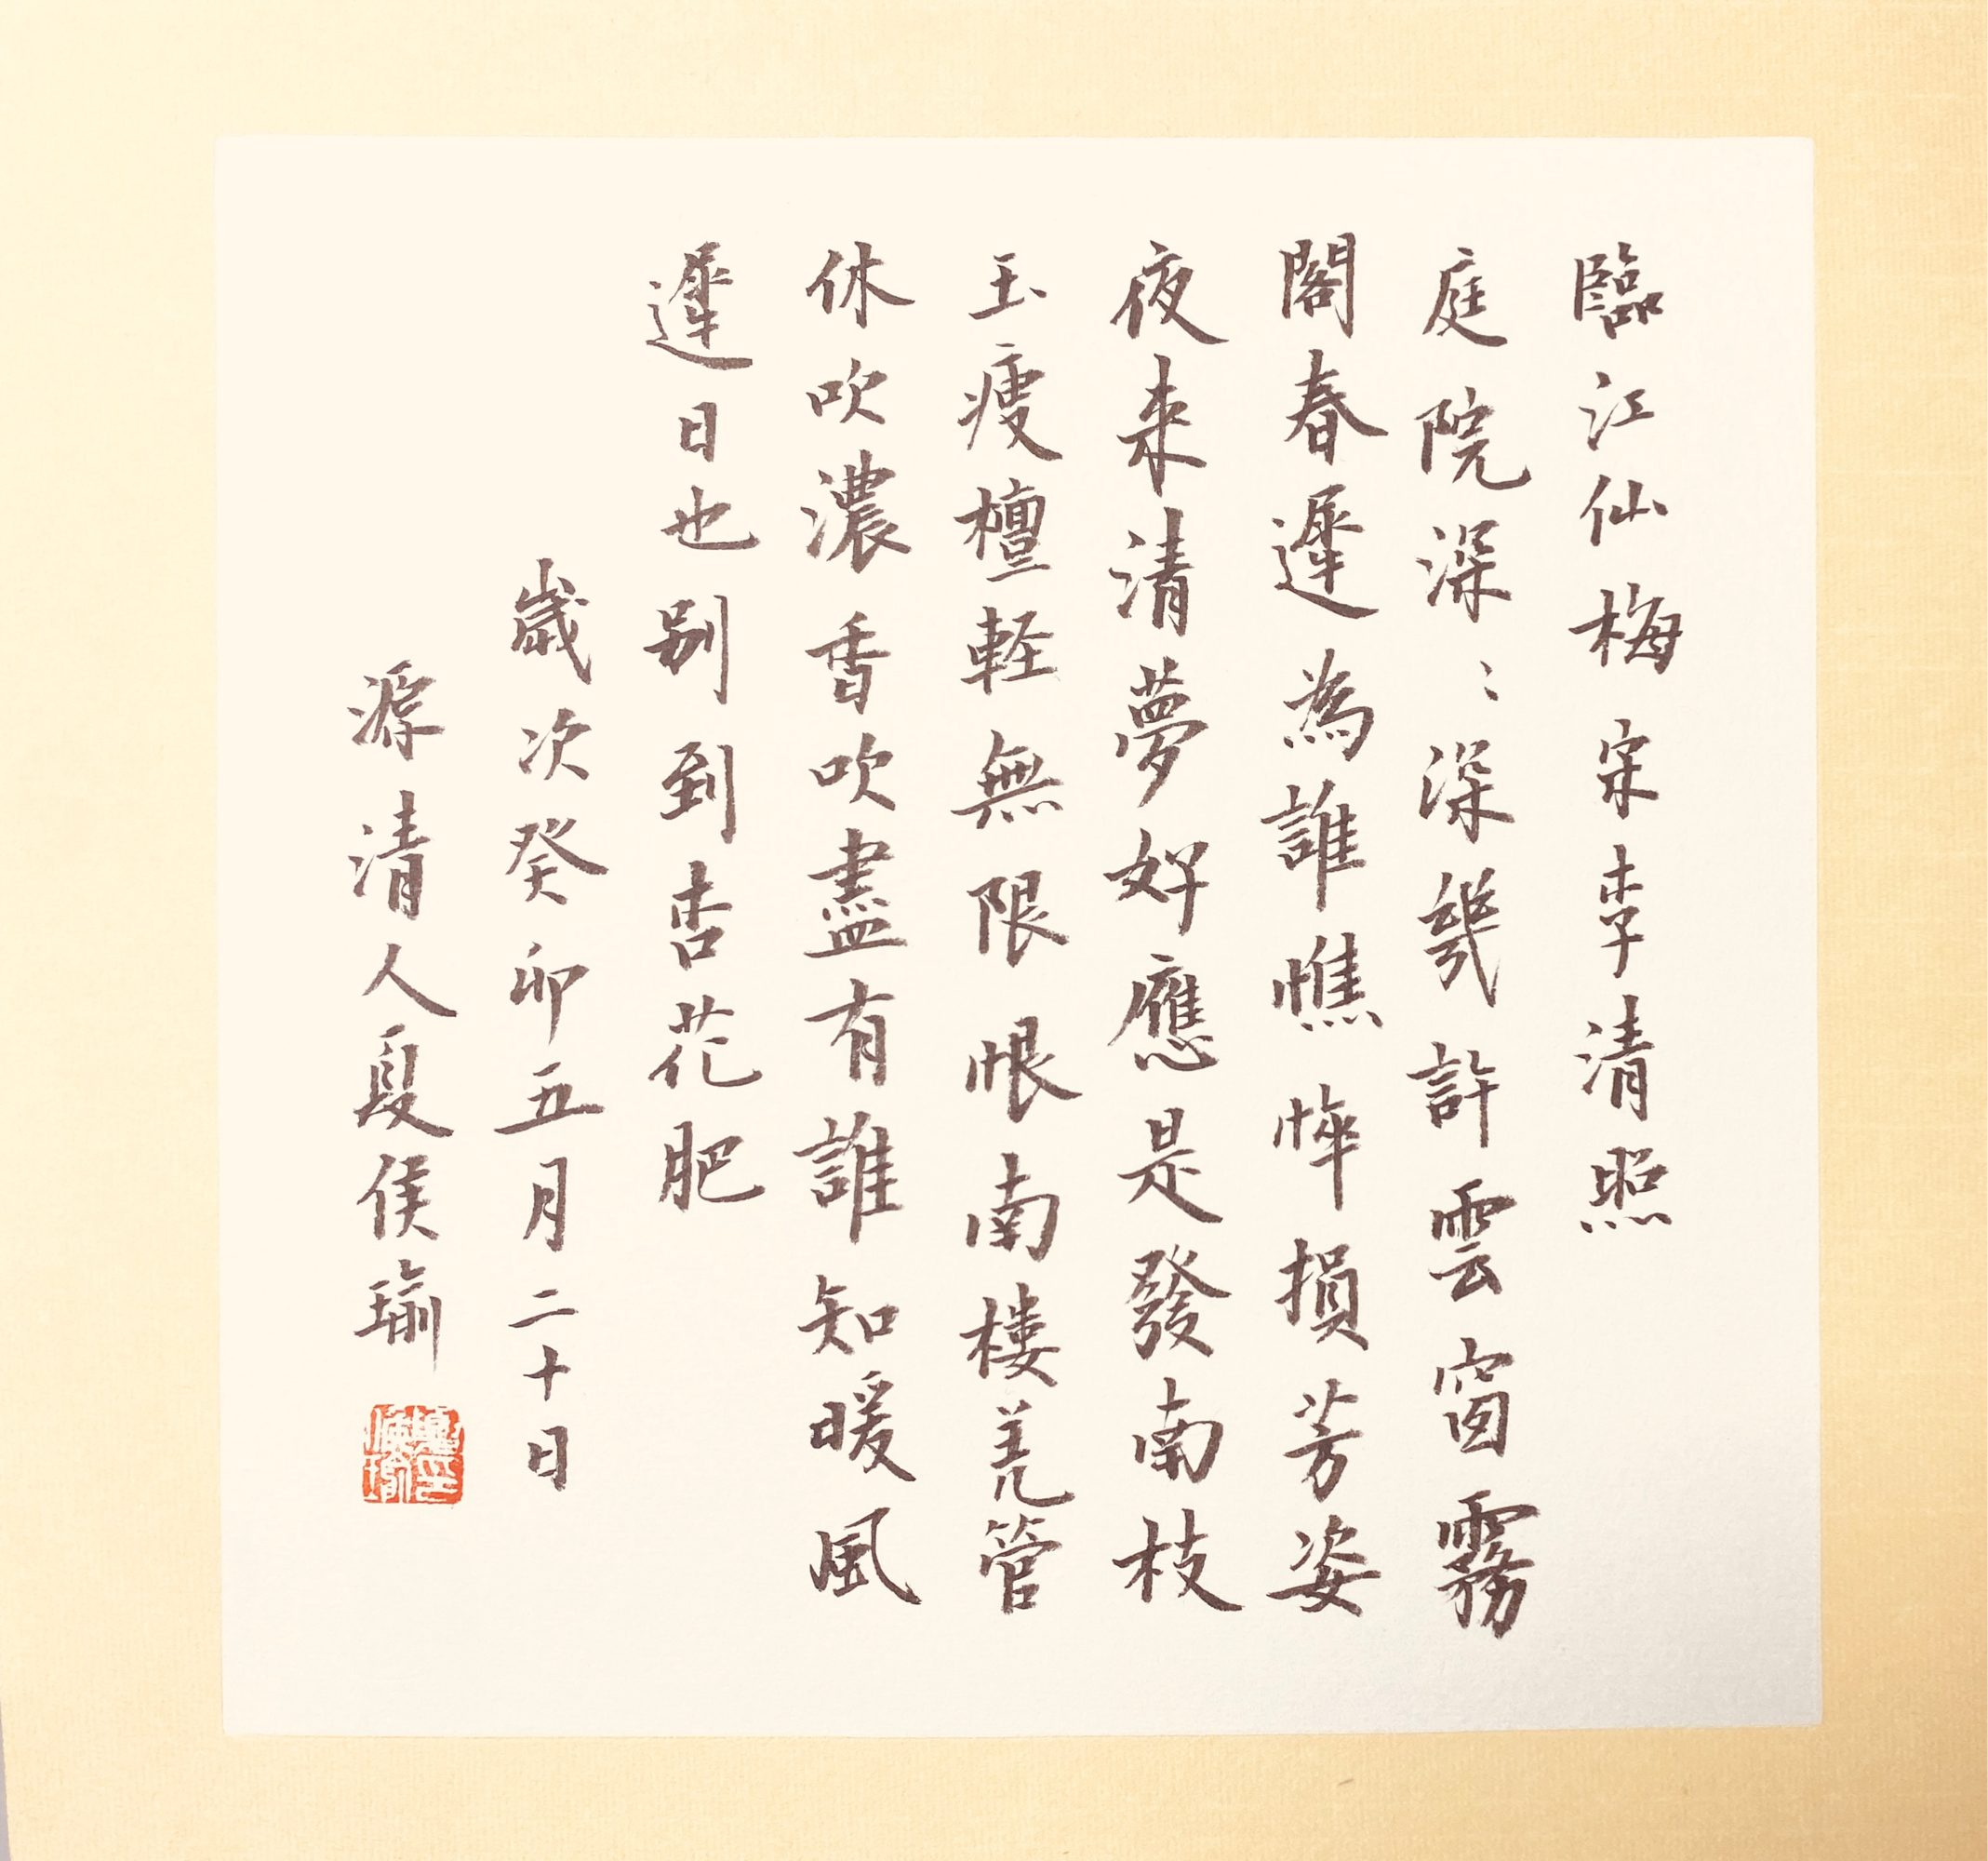 臨江仙梅宋李清照
庭院深〻深幾許雲窗霧
閣春遲為誰憔悴損芳姿
夜來清夢好應是發南枝
玉瘦檀軽無限恨南樓羌管
休吹濃香吹盡有誰知暖風
遲日也别到杏花肥
歲次癸卯五月二十日
源清人夏侯瑜